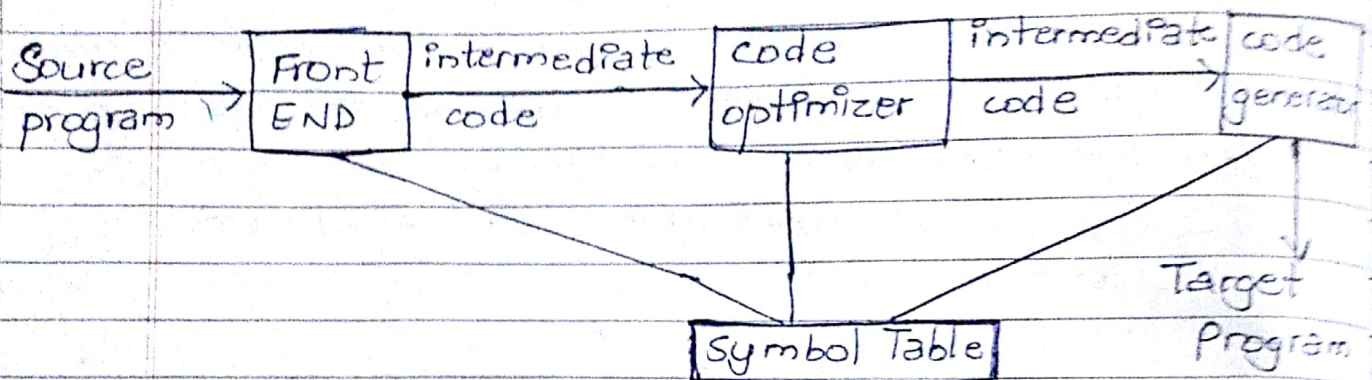 Source
program
Front
END
intermediate
code
code
optimizer
intermediate
code
code
Target
Program
Symbol Table